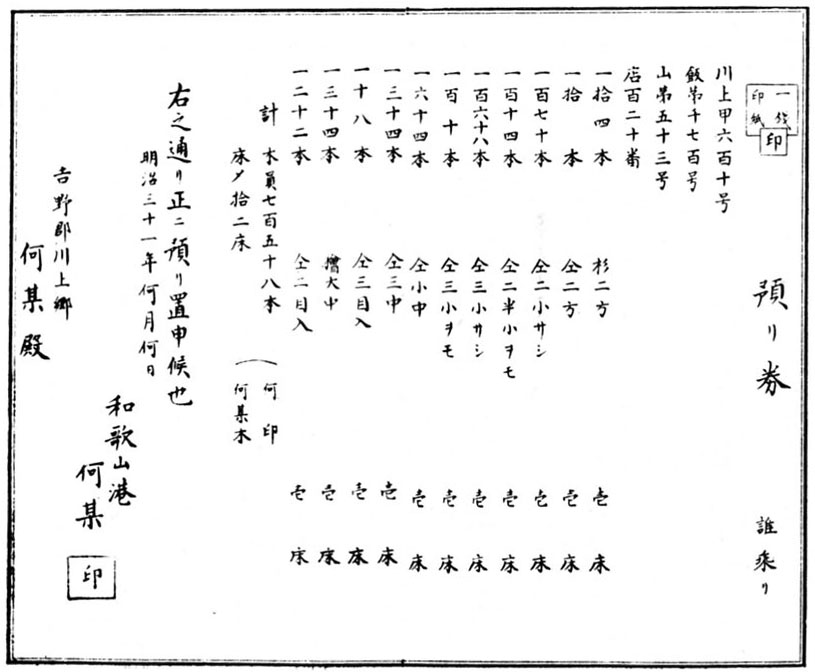 一銭
印紙
印
預リ券
誰乗リ
川上甲六百十号
飯第千七百号
山第五十三号
店百二十番
一拾四本 杉二方 壱床
一拾本 仝二方 壱床
一百七十本 仝二小サシ 壱床
一百十四本 仝二半小ヲモ 壱床
一百六十八本 仝三小サシ 壱床
一百十本 仝三小ヲモ 壱床
一六十四本 仝小中 壱床
一三十四本 仝三中 壱床
一十八本 仝三目入 壱床
一三十四本 檜大中 壱床
一二十二本 仝二目入 壱床
計 本員七百五十八本 何印
床〆拾二床 何某木
右之通リ正ニ預リ置申候也
明治三十一年何月何日
和歌山港
何某
印
吉野郡川上郷
何某殿